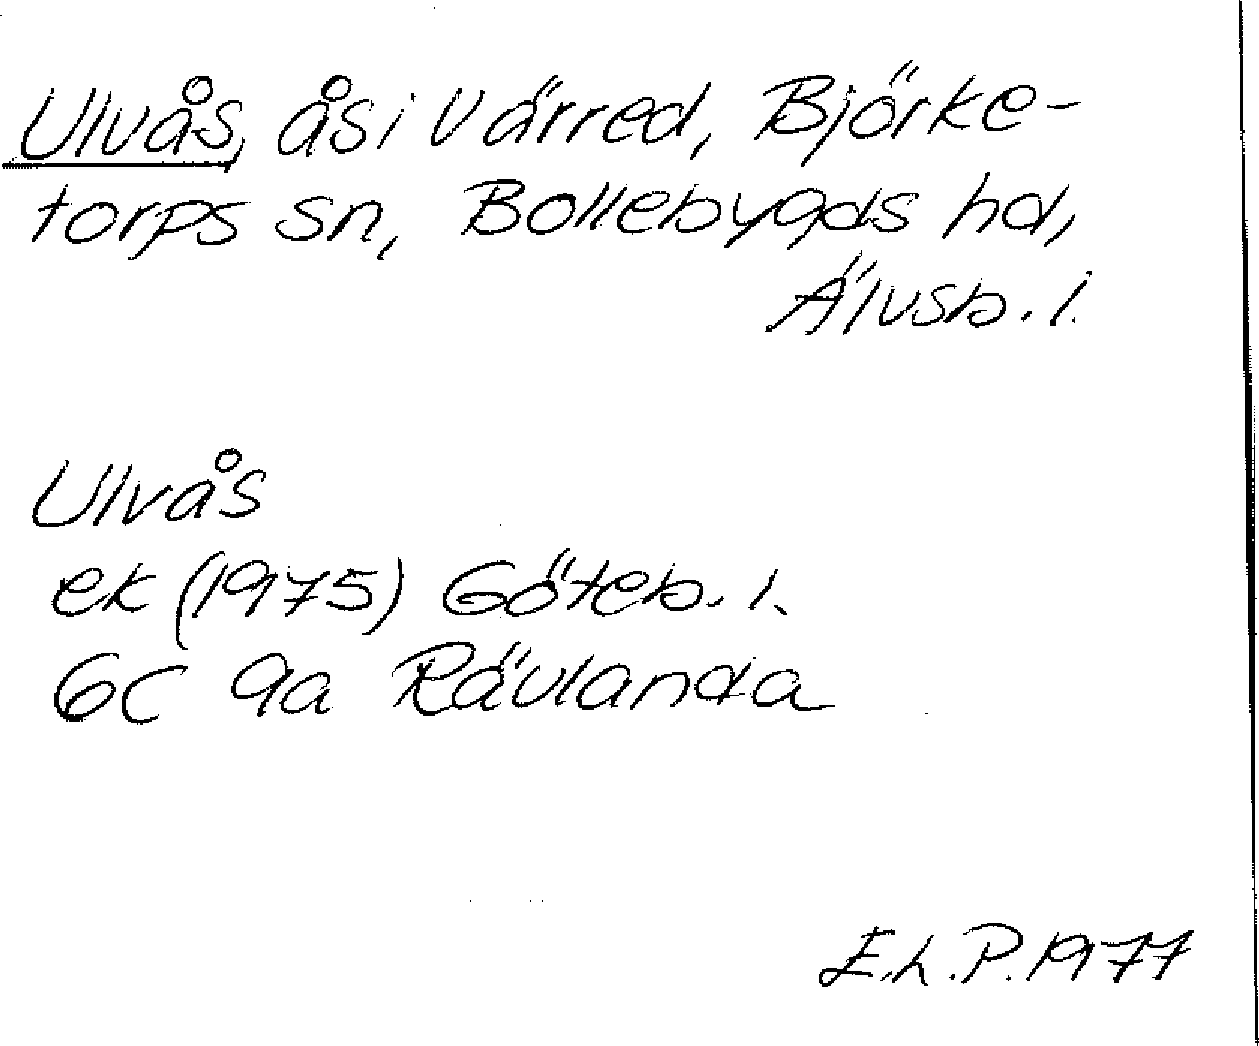 Ulvås, ås i Värred, Björke-
torps sn, Bollebygds hd,
Älvsb. l.
Ulvås
ek (1975) Göteb. l.
6C 9a Rävlanda
E.L.P. 1977